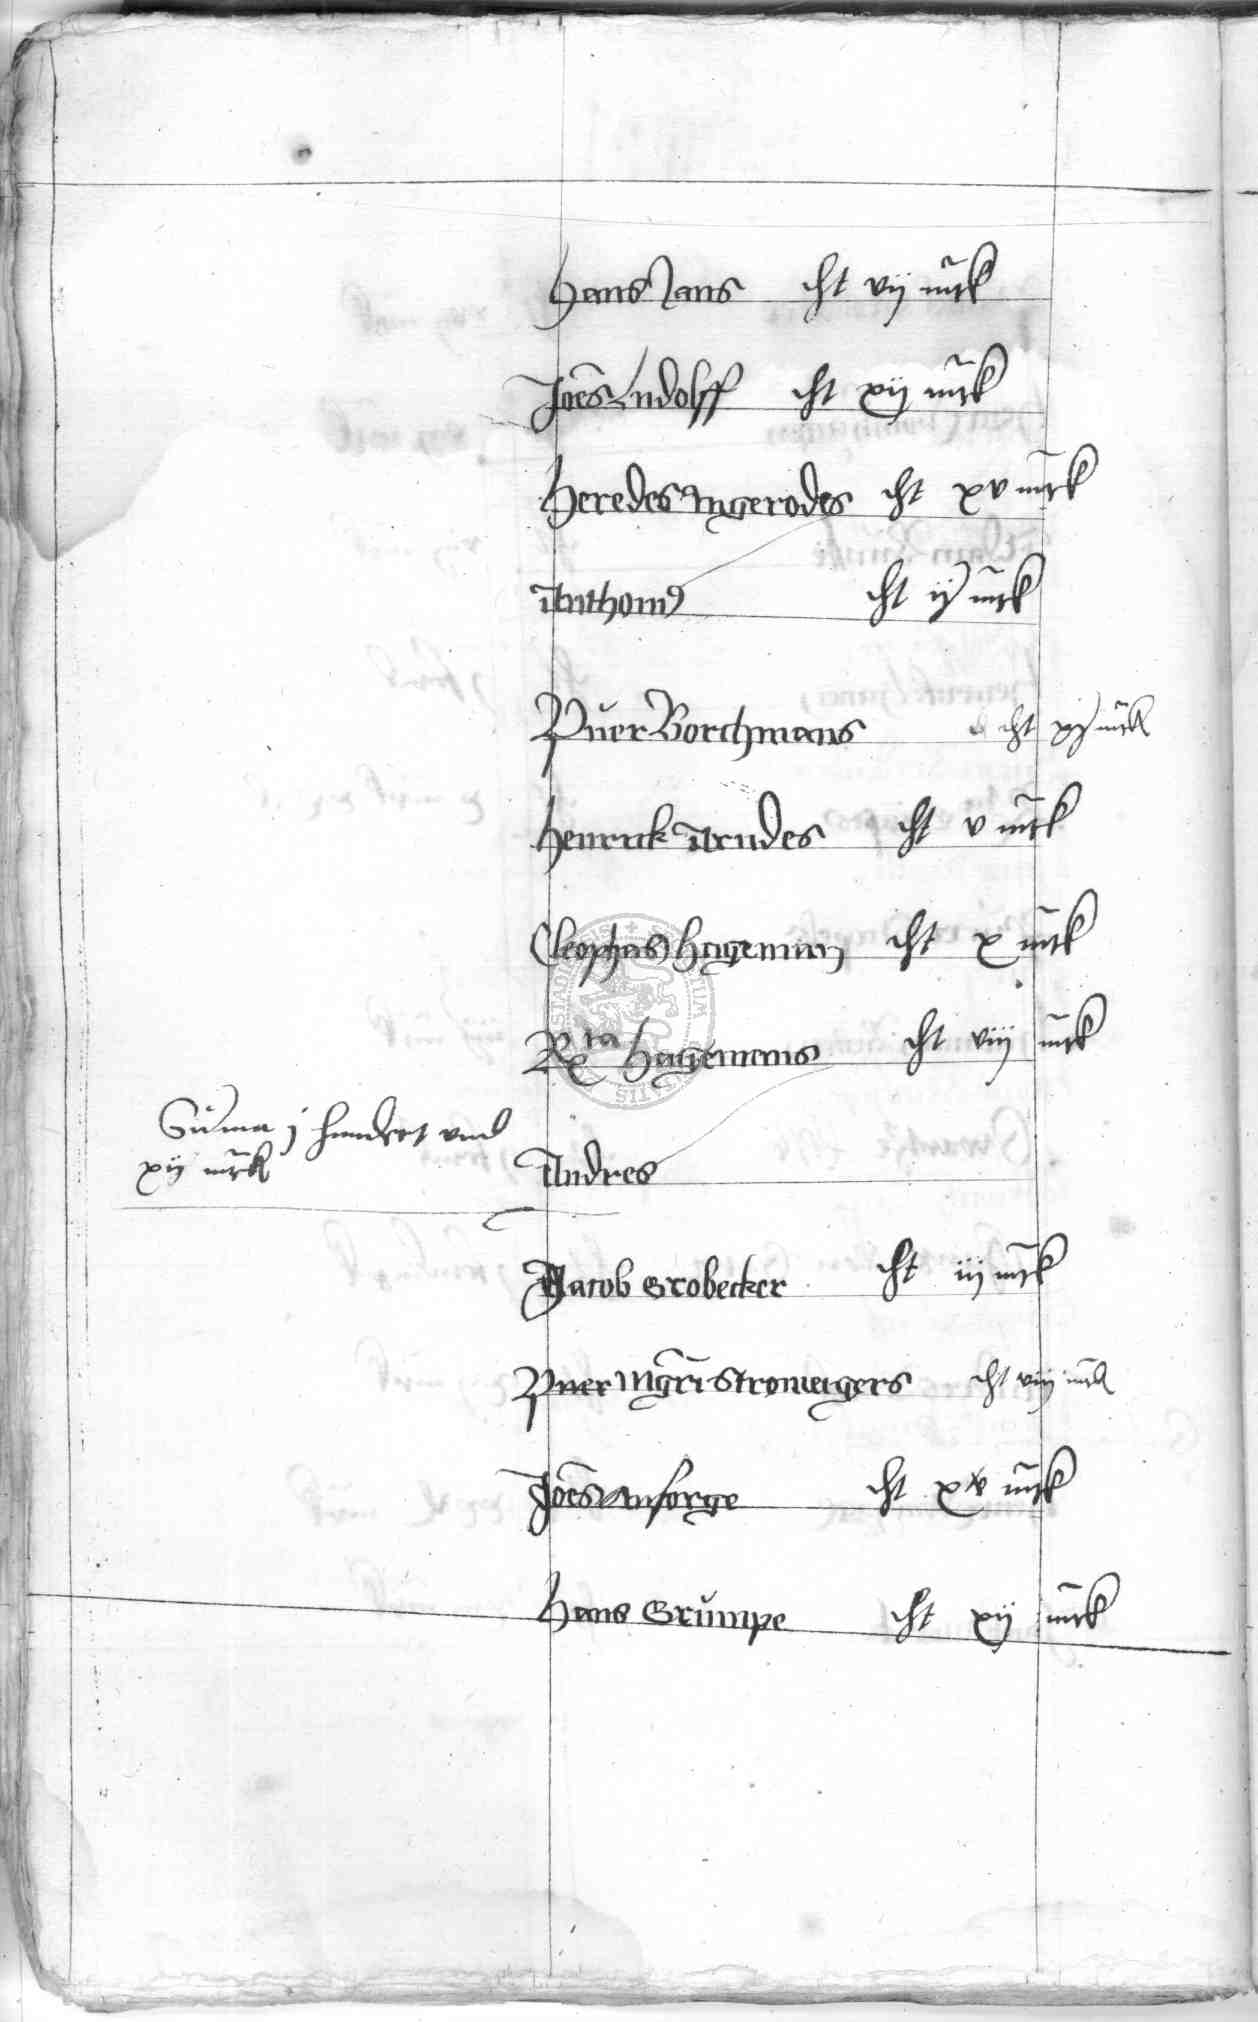 Hans Jans cht vij mrk
Joes Ludolff cht xij mrk
Heredes Ingerodes cht xv mrk
Anthoni9 cht ij mrk
Puer Borchmans cht xj mrk
Henrick Arndes cht v mrk
Cleophas Hageman cht x mrk
Rta Hagemans cht viij mrk
Suma j hundert und
xij mrk
Andres
Jacob Grobecker cht iij mrk
Puer Mgri Stromeigers cht viij mrk
Joes Ansorge cht xv mrk
Hans Grumpe cht xij mrk